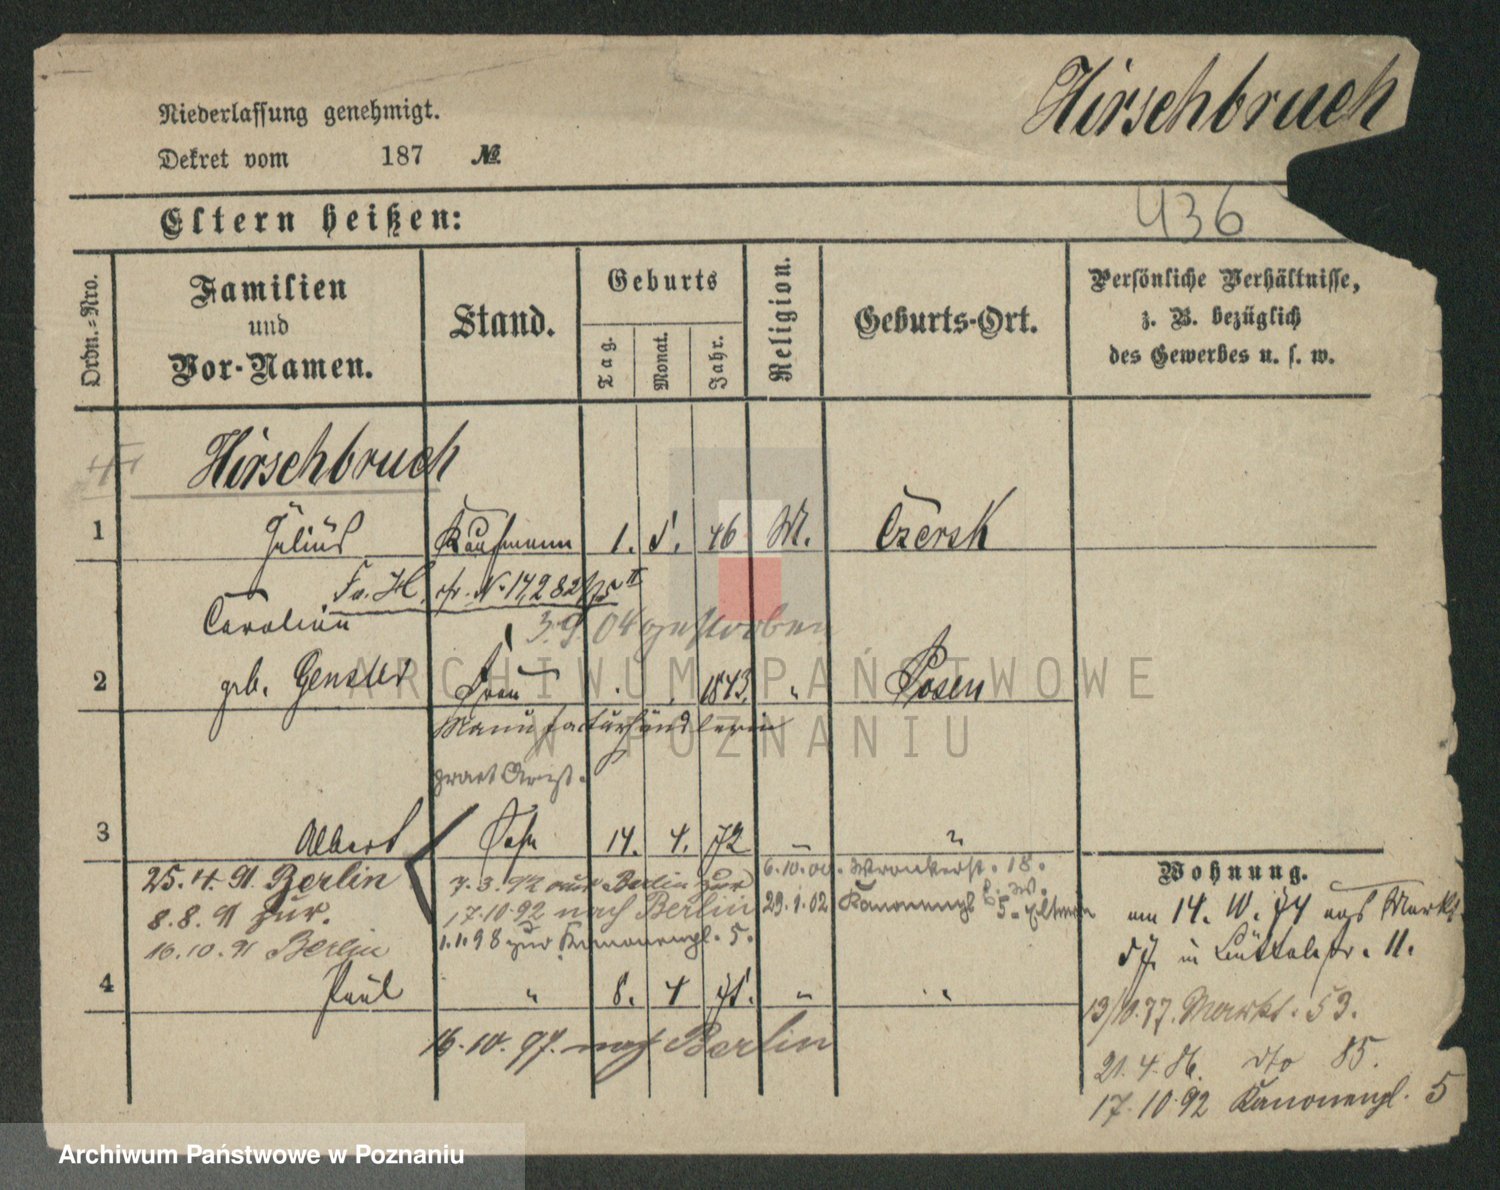 Hirschbruch
Niederlassung genehmigt.
Dekret vom 187 №
436
Eltern heißen:
Ordn.=Nro.
Familien und Vor-Namen.
Stand.
Geburts
Tag.
Monat.
Jahr.
Religion.
Geburts-Ort.
Persönliche Verhältnisse,
z. B. bezüglich
des Gewerbes u. s. w.
Hirschbruch
1 Julius Kaufmann 1. 5. 46 M. Czersk
Caroline
3.9.04 gestorben
2 geb. Frau 1843 " Posen
Manufacturhändlerin
3 Albert Sohn 14. 4. 72 " "
25.4.91 Berlin
8.8.91 zur.
16.10.91 Berlin
7.3.92 aus Berlin zur
17.10.92 nach Berlin
1.1.98 zur Kanonenpl. 5.
6.10.00. Wronkerst. 18.
29.1.02 Kanonenpl 5.
4 Paul " 8. 4 75. " "
16.10.97. nach Berlin
Wohnung.
am 14. 10. 74 aus Markt
57 in 11.
13/10.77. Markt. 53.
21.4.86. dto 85.
17.10.92 Kanonenpl. 5
ARCHIWUM PAŃSTWOWE
W POZNANIU
Archiwum Państwowe w Poznaniu